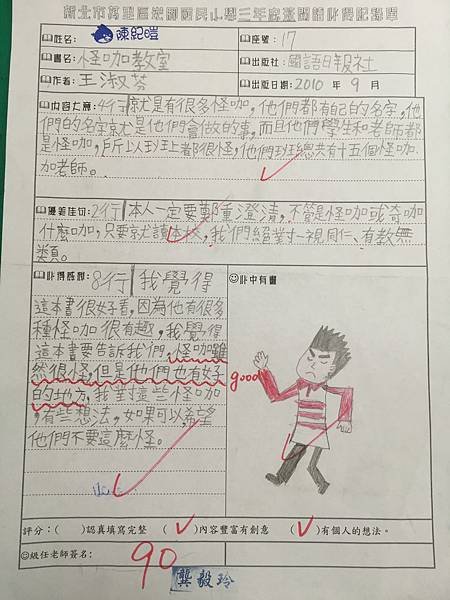 新北市萬里區 國民小學三年 班 閱讀心得紀錄單
姓名: 陳紀愷
座號: 17
書名: 怪咖教室
出版社: 國語日報社
作者: 王淑芬
出版日期: 2010 年 9 月
內容大意: 4行 就是有很多怪咖,他們都有自己的名字,他
們的名字就是他們會做的事,而且他們學生和老師都
是怪咖,所以班上都很怪,他們班總共有十五個怪咖
加老師。
優美佳句: 2行 本人一定要鄭重澄清,不管是怪咖或奇咖
什麼咖,只要就讀本校,我們絕對一視同仁、有教無
類。
心得感想: 8行 我覺得
這本書很好看,因為他有很多
種怪咖很有趣,我覺得
這本書要告訴我們,怪咖雖
然很怪,但是他們也有好
的地方,我對這些怪咖
,有些想法,如果可以,希望
他們不要這麼怪。
心中有畫
good
評分:( )認真填寫完整 ( )內容豐富有創意 ( )有個人的想法。
級任老師簽名:
90
龔毅玲